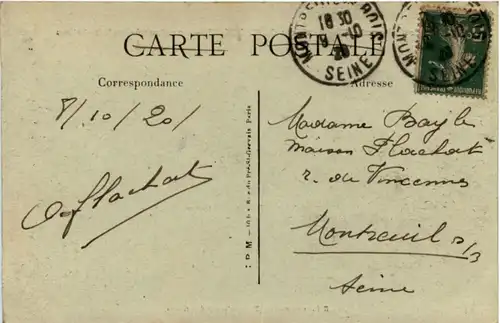 MONTREUIL-S-BOIS
18 30
9 -10
20
SEINE
CARTE POSTALE
Correspondance
Adresse
8/10/20/
Flachat
Madame Bayle
maison Flachat
r. de Vincennes
Montreuil s/B
Seine